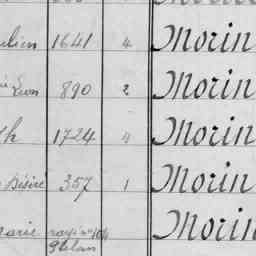 ulien 1641 4 Morin
Leon 890 2 Morin
th 1724 4 Morin
Désiré 357 1 Morin
Marie Morin